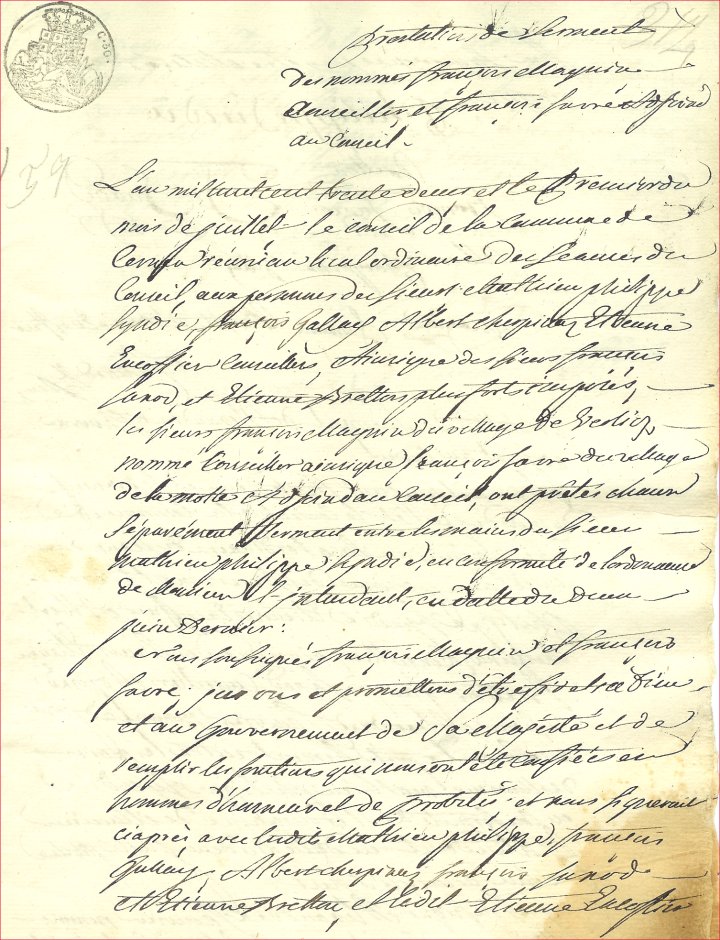 Prestation de Serment
des nommés françois Maquin
Conseiller, et françois favre Adjoind
au Conseil.
L'an mil huit cent trente deux et le Premier du
mois de juillet le conseil de la Commune de
réuni au local ordinaire des Séances du
Conseil, aux personnes des sieurs Mathieu philippe
Syndic, françois Gallay Albert Etienne
Conseillers, des sieurs françois
et Etienne Bretton plus forts imposés,
les sieurs françois Maquin du village de
nommé Conseiller françois favre du village
de la motte Adjoind au Conseil, ont prêtés chacun
Séparément Serment entre les mains du Sieur
mathieu philippe Syndic, en conformité de l'ordonnance
de Monsieur l'intendant, en datte du
juin Dernier:
Nous soussignés françois Maquin et françois
favre, jurons et promettons d'être à Dieu
et au Gouvernement de Sa Magesté et de
remplir les fonctions qui nous ont été confiées en
hommes d'honneur et de Probités. et nous
ciaprès, avec ludit Mathieu philippe, françois
Gallay, Albert françois
et Etienne Bretton, et ledit Etienne